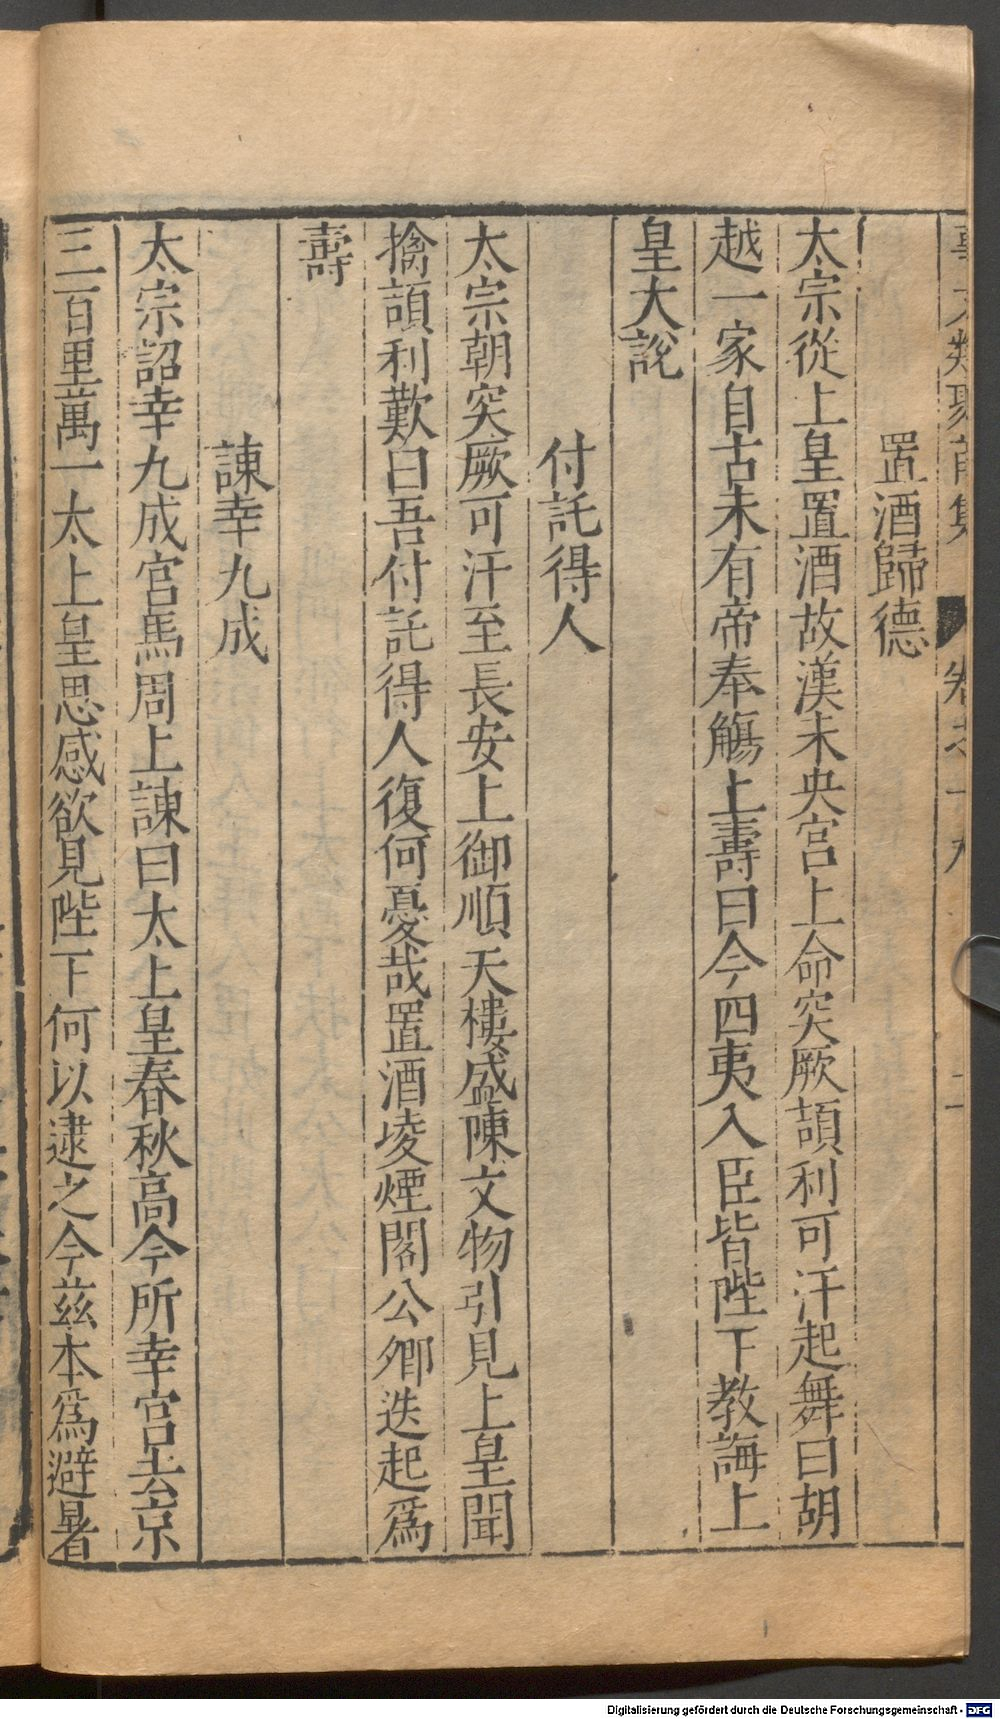 事文類聚前集 卷之十九 二
置酒歸德
太宗從上皇置酒故漢未央宮上命突厥頡利可汗起舞曰胡
越一家自古未有帝奉觴上壽曰今四夷入臣皆陛下教誨上
皇大說
付託得人
太宗朝突厥可汗至長安上御順天樓盛陳文物引見上皇聞
擒頡利歎曰吾付託得人復何憂哉置酒凌煙閣公卿迭起爲
壽
諫幸九成
太宗詔幸九成宮馬周上諫曰太上皇春秋高今所幸宮去京
三百里萬一太上皇思感欲見陛下何以逮之今兹本爲避暑
Digitalisierung gefördert durch die Deutsche Forschungsgemeinschaft - DFG